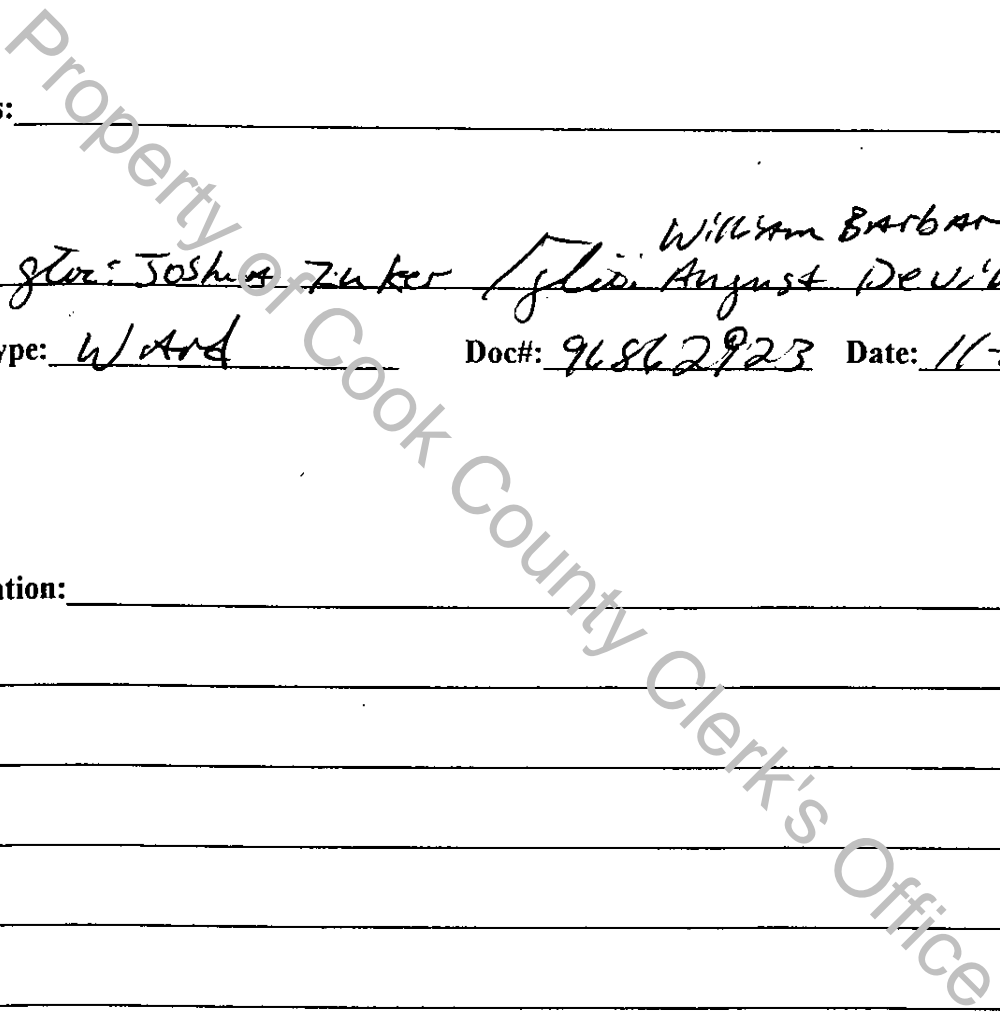 Property of Cook County Clerk's Office
s:
William Barbar
gtor: Joshua Zuker / gtee: August Devil
ype: Ward Doc#: 96862923 Date: 11-
ation: